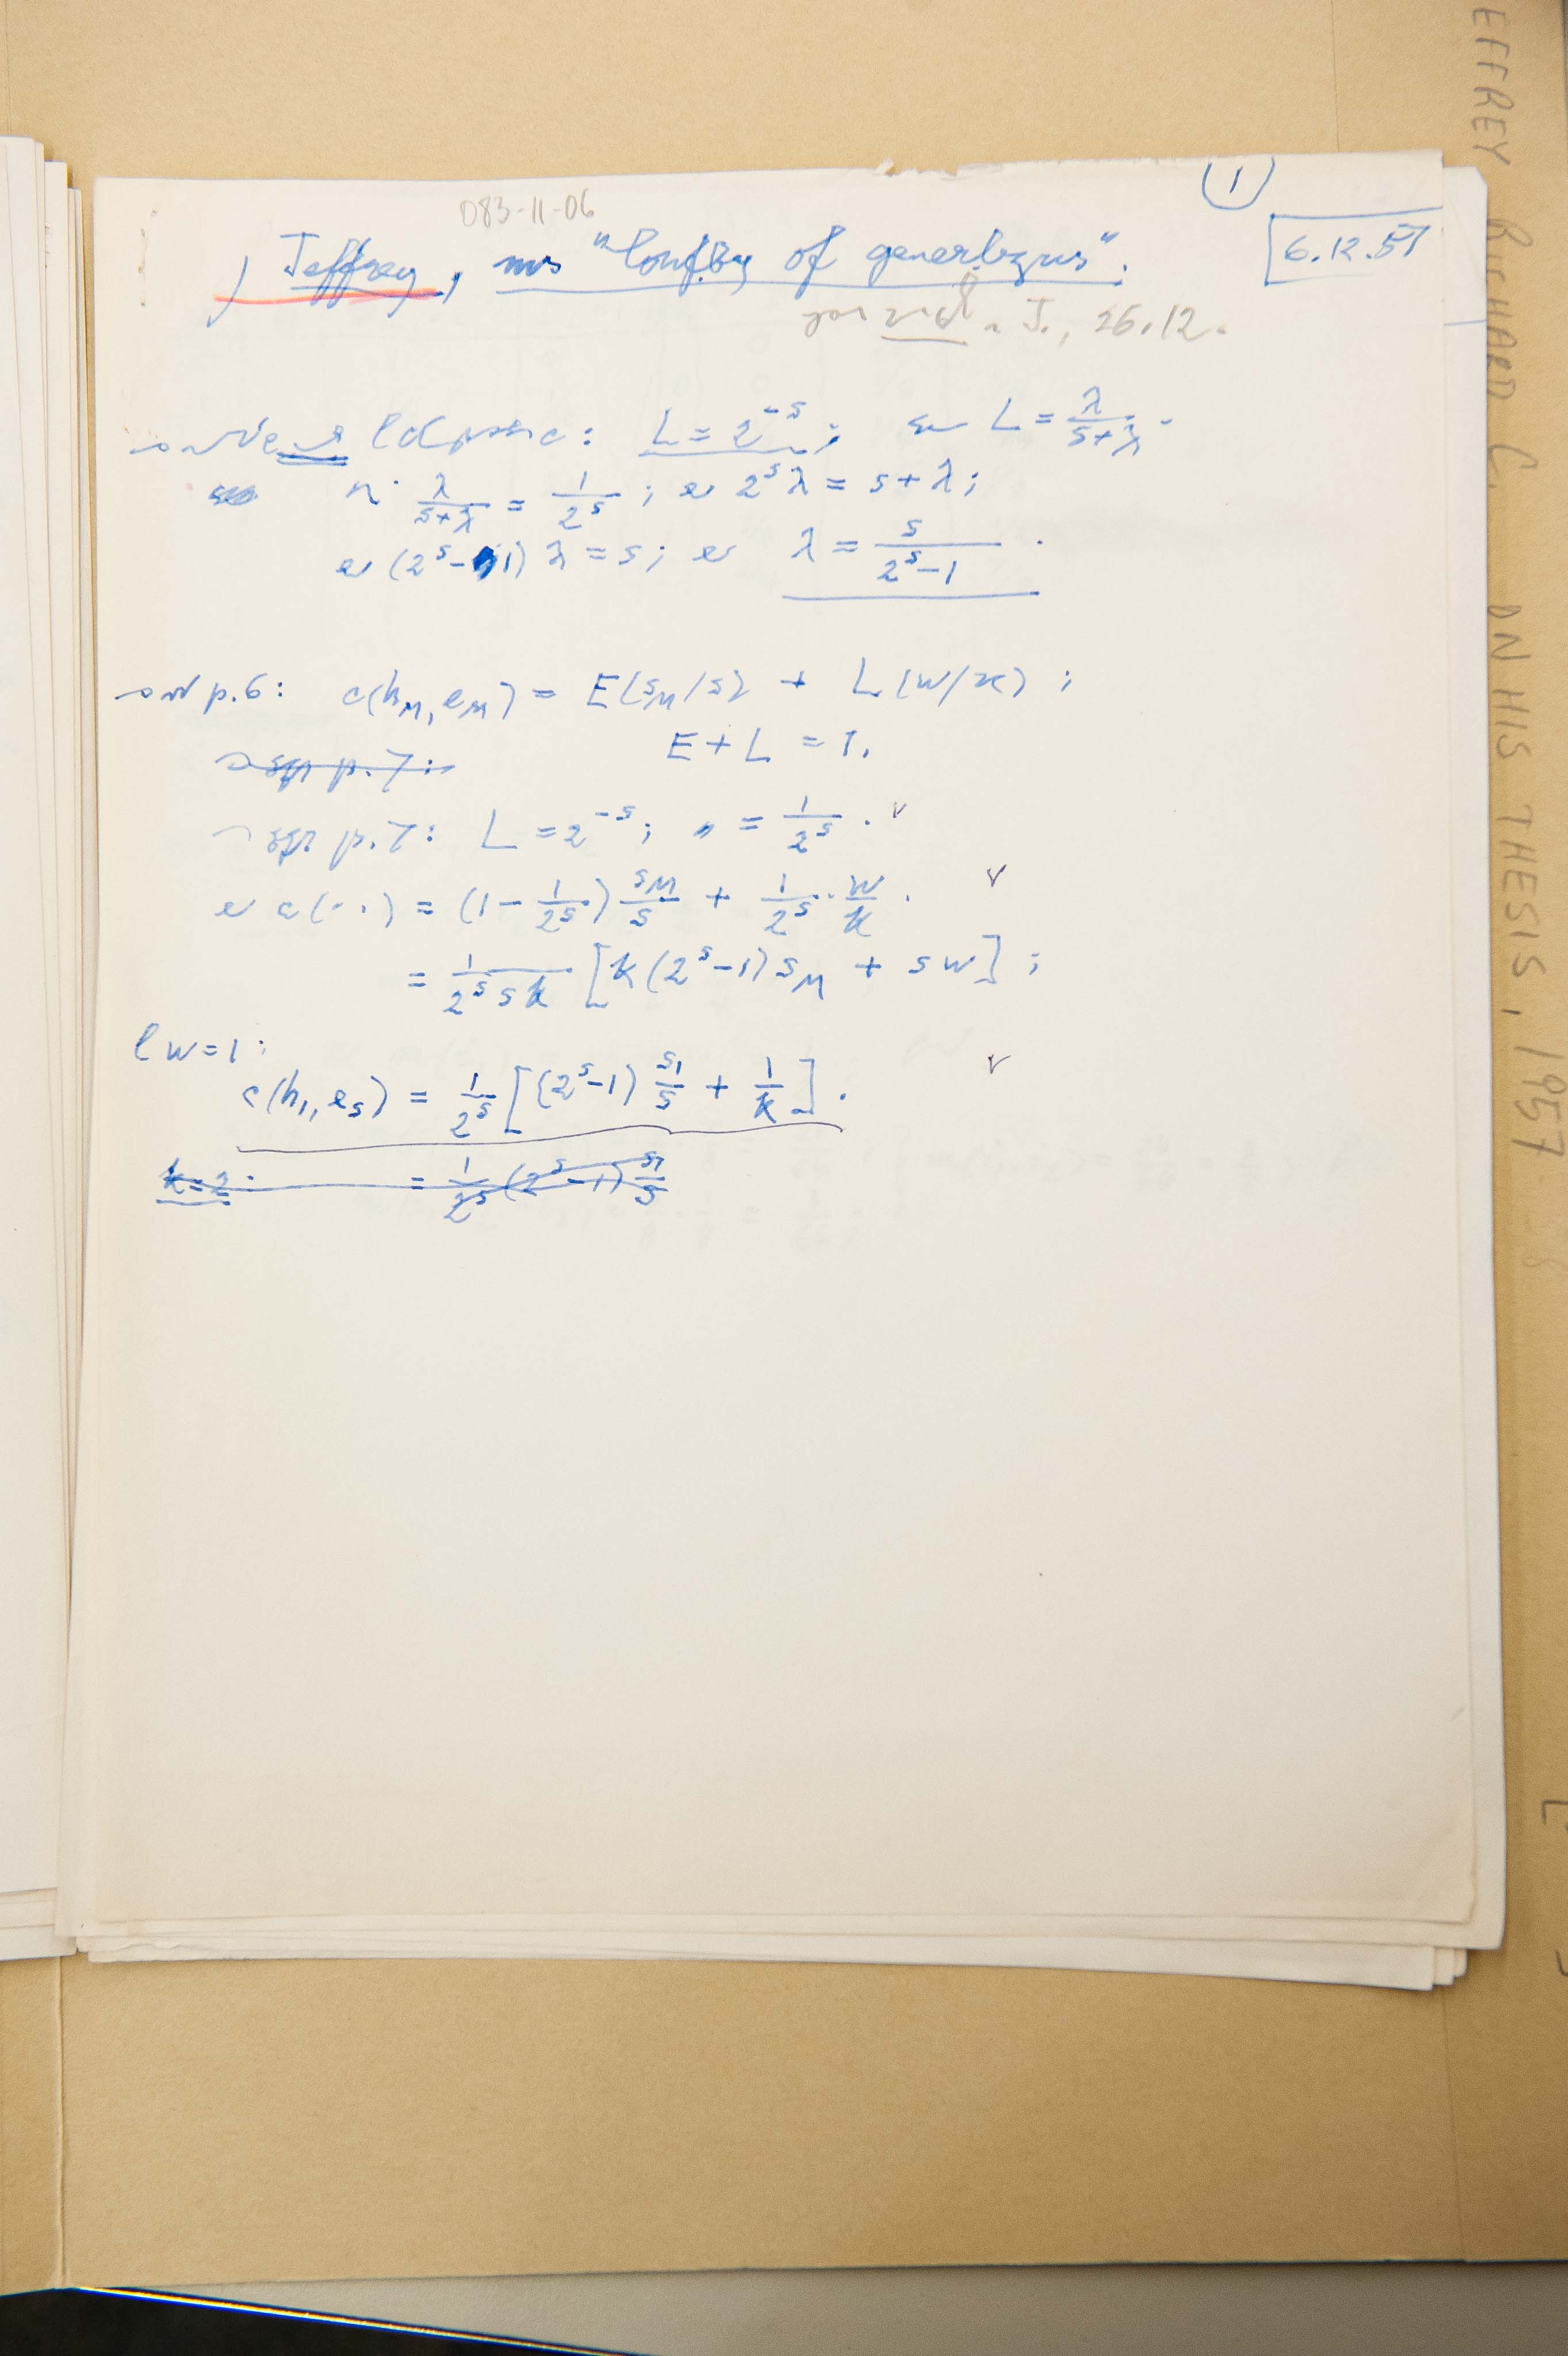 1
083-11-06
6.12.57
Jeffrey, ms "Confby of generlizns".
J., 26.12.
L = 2^{-s}; L = λ/(s+λ).
λ/(s+λ) = 1/2^s; 2^s λ = s+λ;
(2^s-1) λ = s; λ = s/(2^s-1).
p.6: c(h_M, e_M) = E(s_M/s) + L(w/κ);
E+L = 1.
p.7:
p.7: L = 2^{-s}; " = 1/2^s. v
c(..) = (1 - 1/2^s) s_M/s + 1/2^s · w/k. v
= 1/(2^s s k) [k(2^s-1) s_M + s w];
w=1:
c(h_1, e_s) = 1/2^s [(2^s-1) s_1/s + 1/k]. v
k=2: = 1/2^s (2^s-1) s_1/s
EFFREY RICHARD C. ON HIS THESIS, 1957